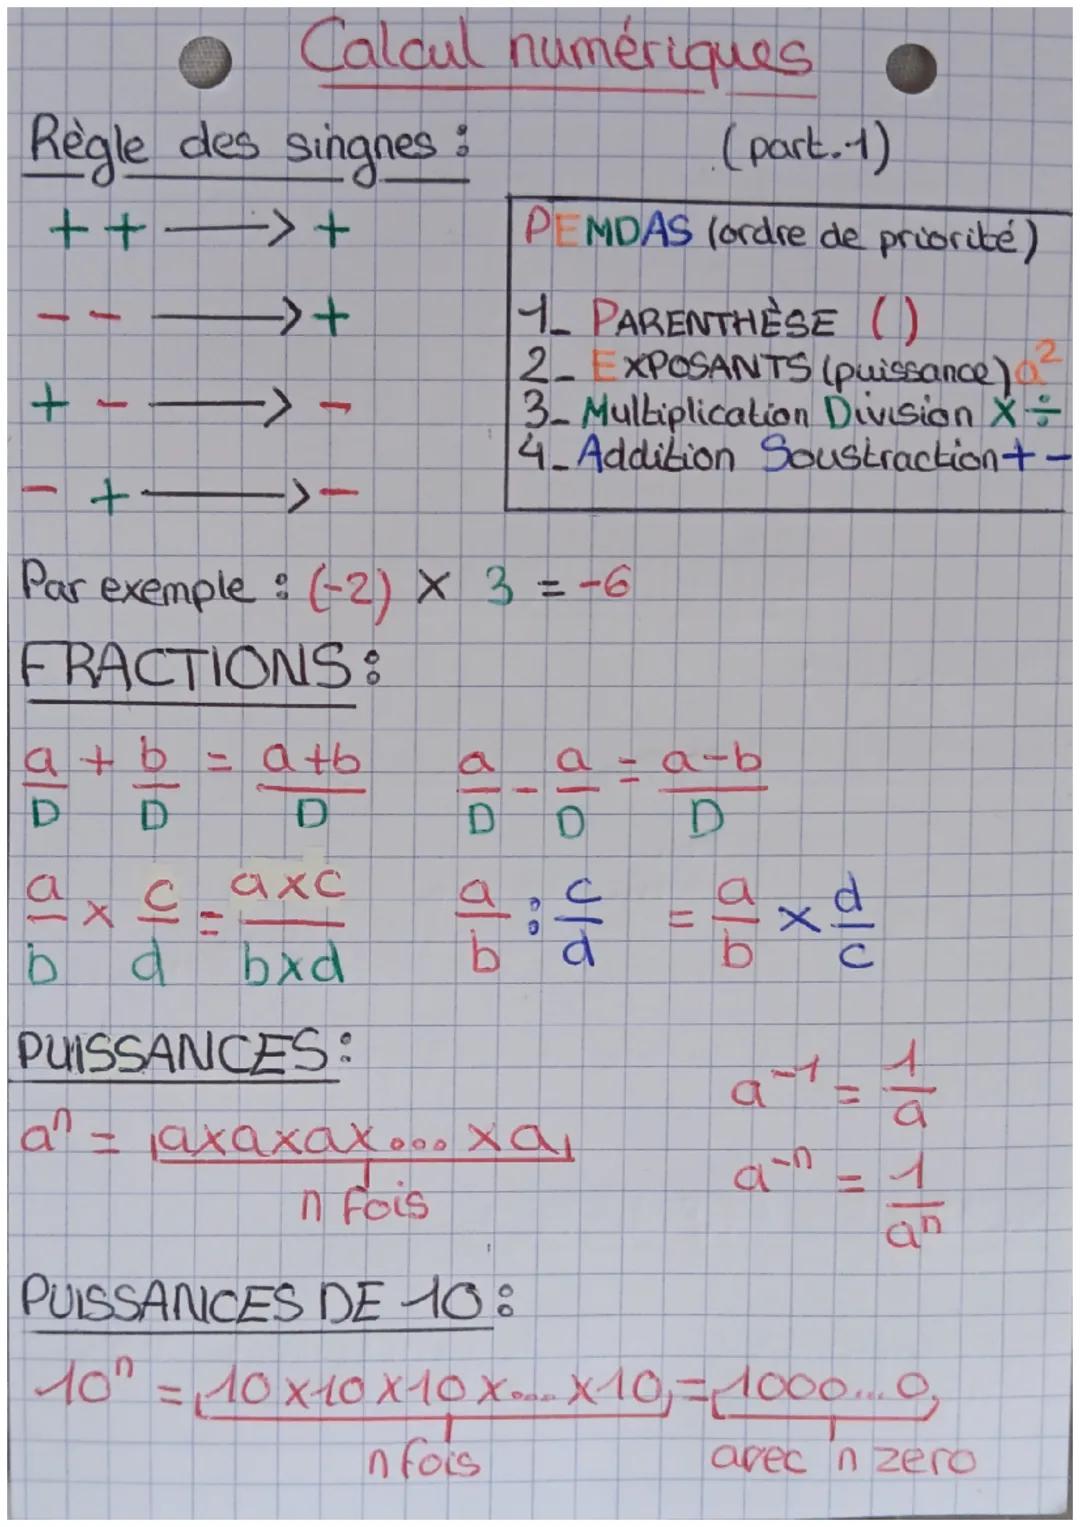 Calcul numériques
Règle des singnes :
(part.1)
+ + ⟶ +
- - ⟶ +
+ - ⟶ -
- + ⟶ -
PEMDAS (ordre de priorité)
1_ PARENTHÈSE ( )
2_ EXPOSANTS (puissance) a²
3_ Multiplication Division × ÷
4_ Addition Soustraction + -
Par exemple : (-2) × 3 = -6
FRACTIONS :
a/D + b/D = a+b/D
a/D - a/D = a-b/D
a/b × c/d = a×c/b×d
a/b : c/d = a/b × d/c
PUISSANCES :
aⁿ = a×a×a×...×a
n fois
a⁻¹ = 1/a
a⁻ⁿ = 1/aⁿ
PUISSANCES DE 10 :
10ⁿ = 10×10×10×....×10 = 1000...0
n fois
avec n zero